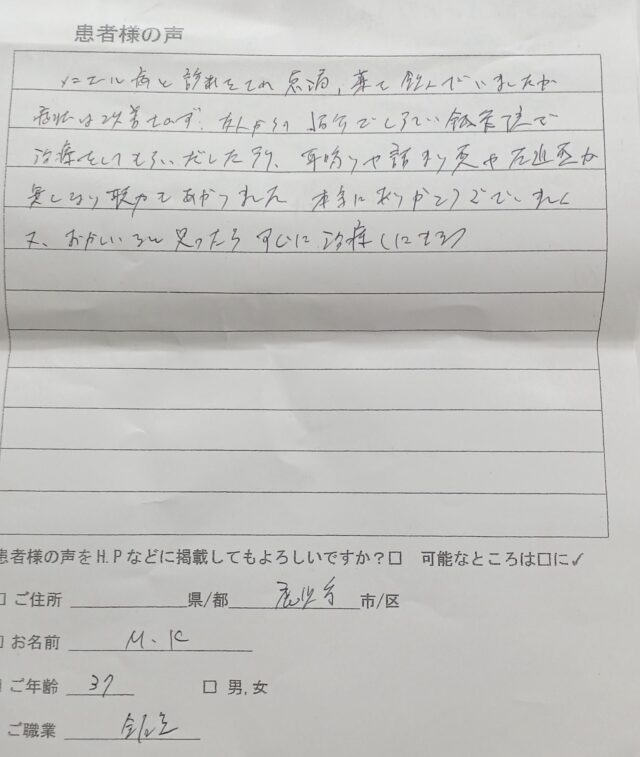 患者様の声
メニエル病と診断をされ点滴、薬を飲んでいましたが
病状は改善せず、友人からの紹介でしろい鍼灸院で
治療をしてもらいだしたら、耳鳴りや詰まり感や圧迫感が
無くなり聴力もあがりました 本当にありがとうございました
又、おかしいなと思ったらすぐに治療しにきます
患者様の声をH.Pなどに掲載してもよろしいですか?□ 可能なところは□に✓
□ ご住所 県/都 鹿児島 市/区
お名前 M.K
ご年齢 37 □ 男,女
ご職業